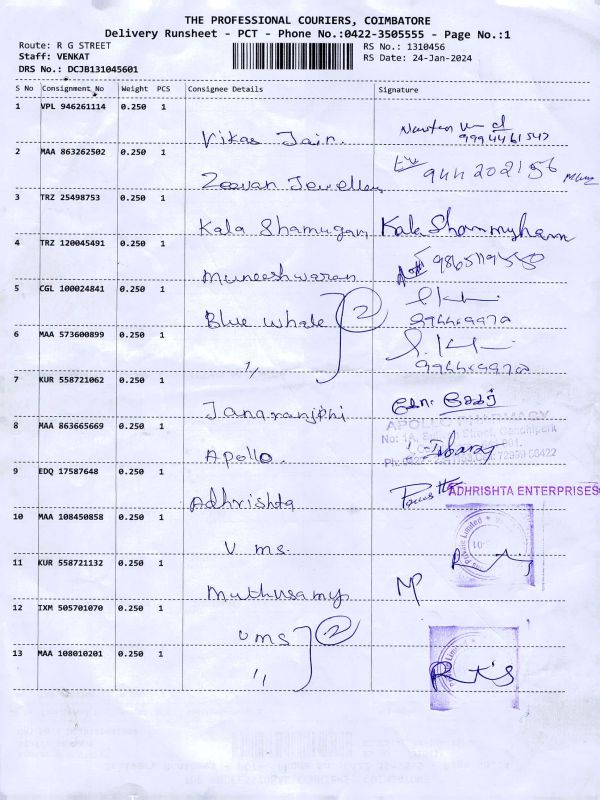 THE PROFESSIONAL COURIERS, COIMBATORE
Delivery Runsheet - PCT - Phone No.:0422-3505555 - Page No.:1
Route: R G STREET RS No.: 1310456
Staff: VENKAT RS Date: 24-Jan-2024
DRS No.: DCJB131045601
S No Consignment_No Weight PCS Consignee Details Signature
1 VPL 946261114 0.250 1
Vikas Jain.
9994461547
2 MAA 863262502 0.250 1
Zeevan Jewellery
944202156
3 TRZ 25498753 0.250 1
Kala Shamugam Kala Shanmugham
4 TRZ 120045491 0.250 1
Muneeshwaran
5 CGL 100024841 0.250 1
Blue whale 2
994469970
6 MAA 573600899 0.250 1
〃
994469970
7 KUR 558721062 0.250 1
Jangranjphi
8 MAA 863665669 0.250 1 APOLLO PHARMACY
Apollo
9 EDQ 17587648 0.250 1
Adhrishta ADHRISHTA ENTERPRISES
10 MAA 108450858 0.250 1
V ms.
11 KUR 558721132 0.250 1
Muthusamy MP
12 IXM 505701070 0.250 1
V ms 2
13 MAA 108010201 0.250 1
〃